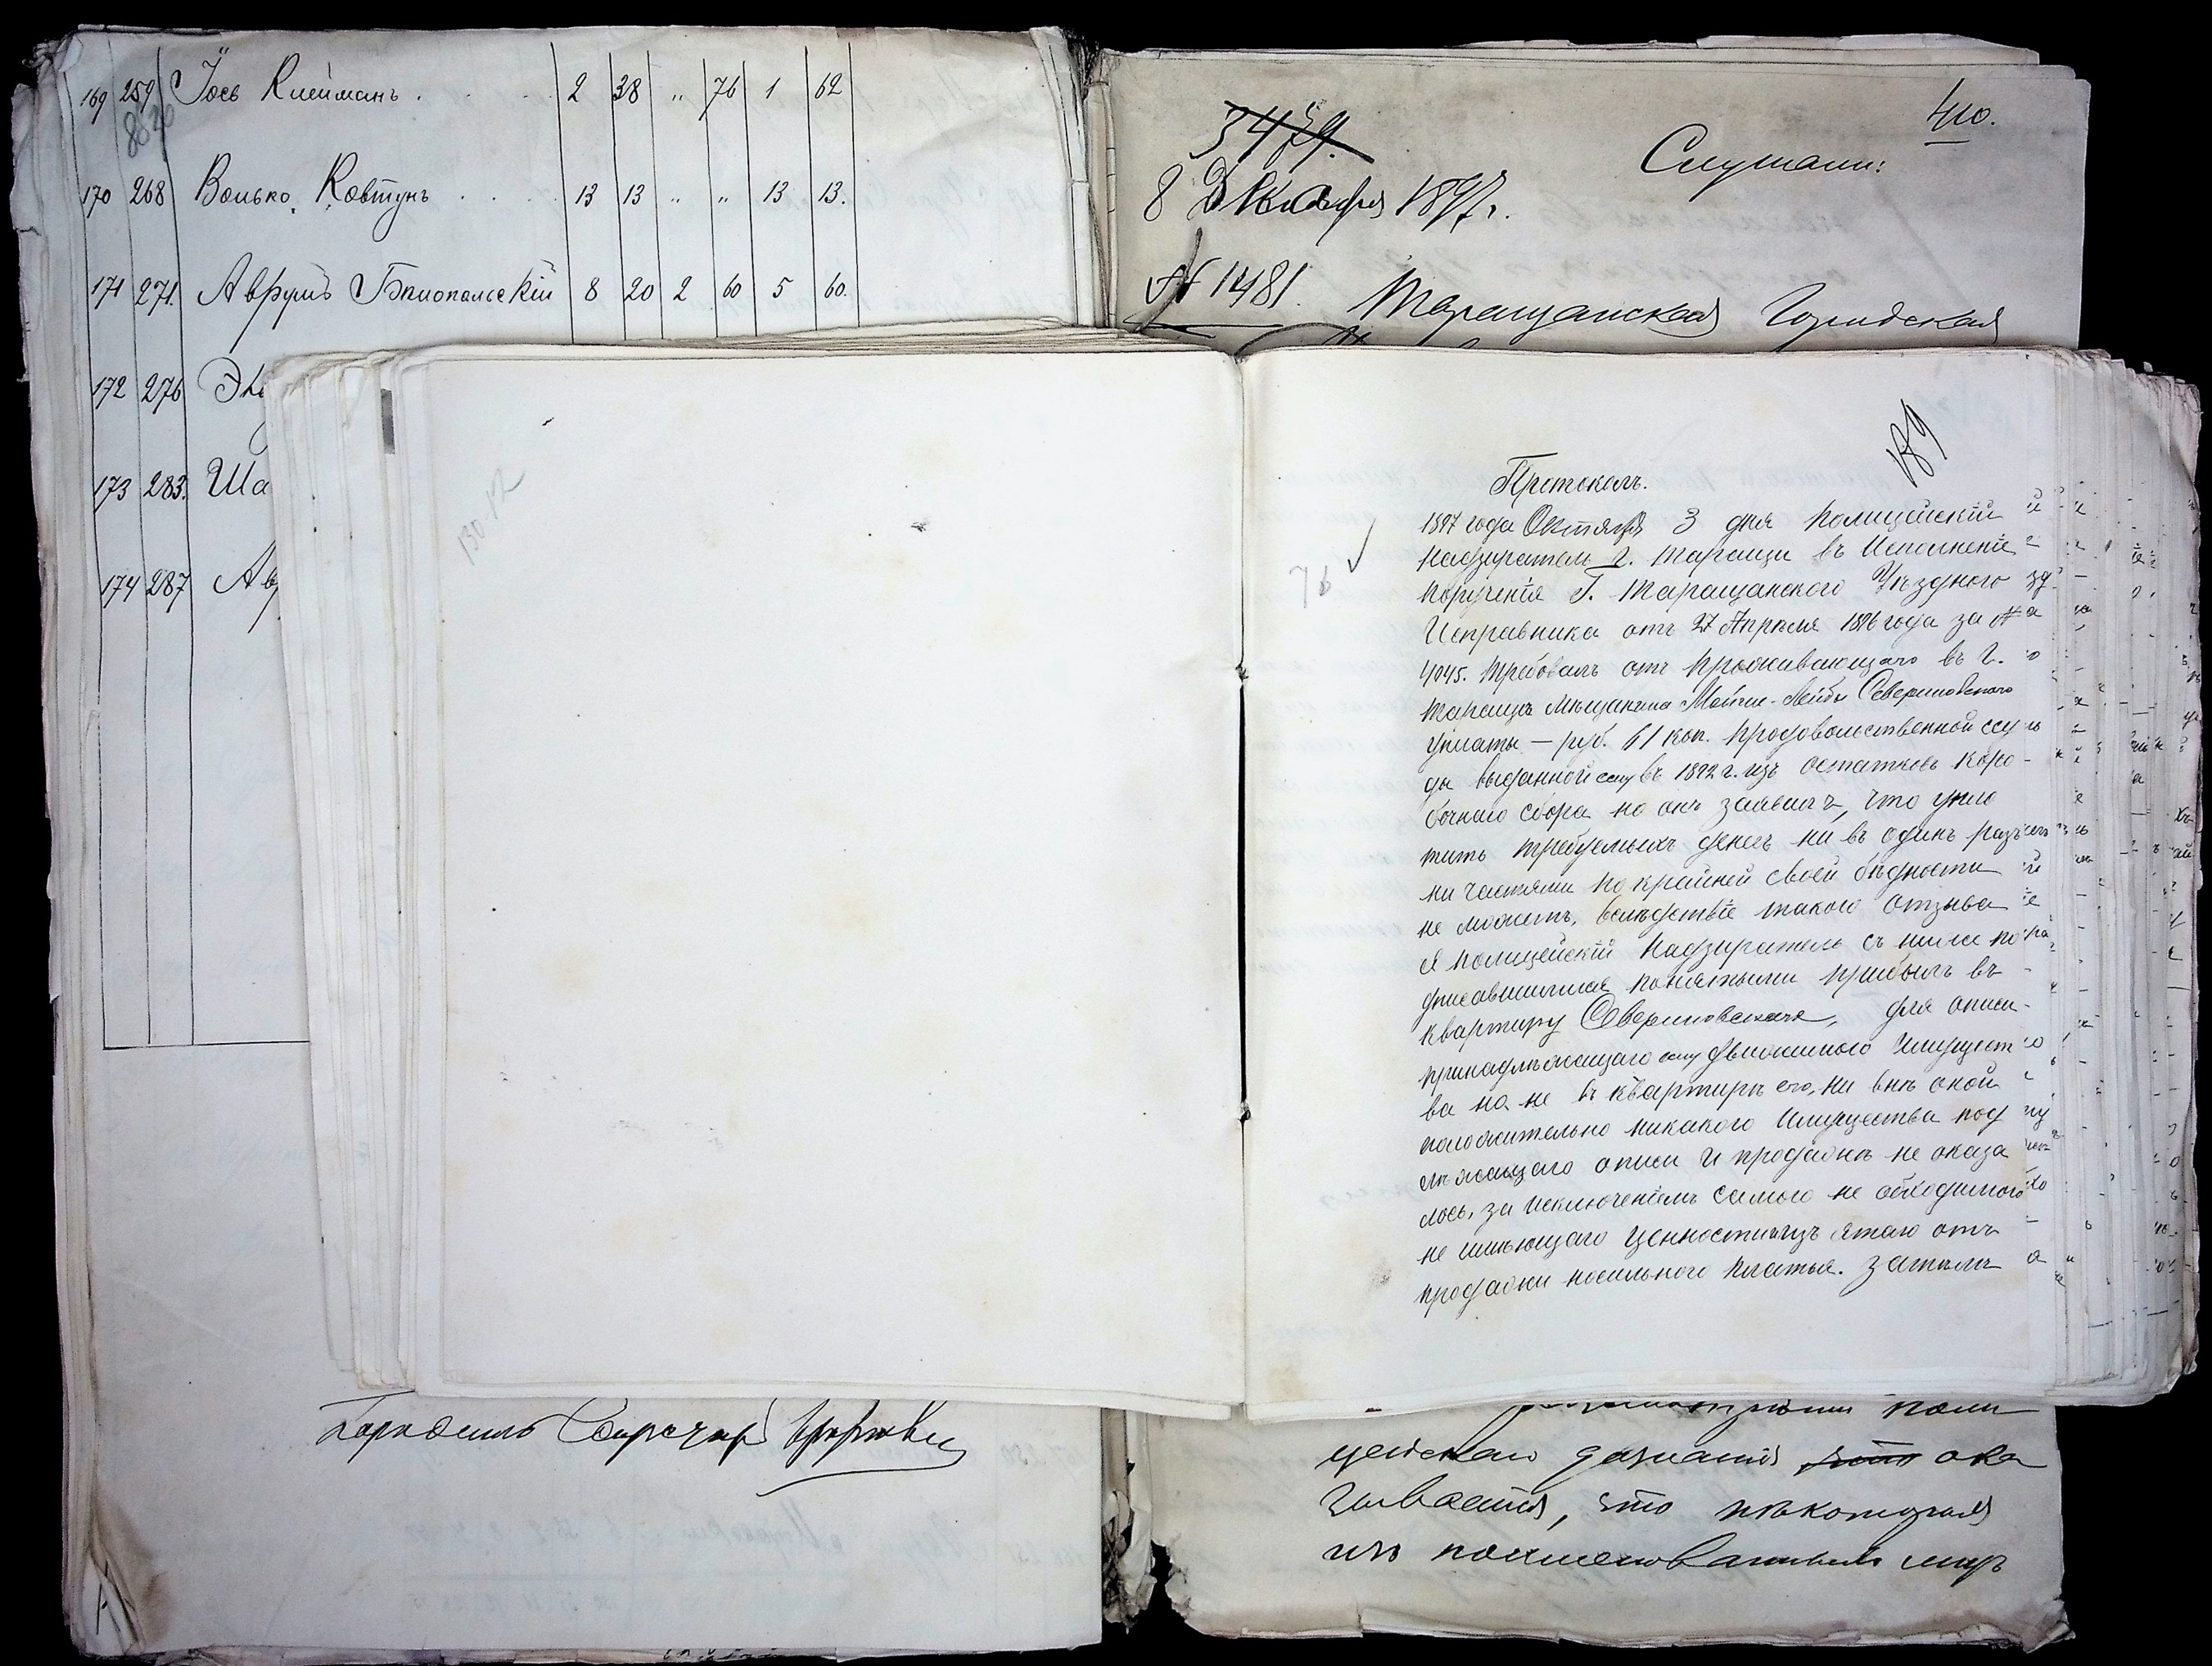 169 259 Іось Клейманъ . . . 2 38 „ 76 1 62
170 268 Волько Ковтунъ . . . 13 13 „ „ 13 13.
171 271. Аврумъ Бялопольскій 8 20 2 60 5 60.
172 276
173 283. Ша
174 287 Ав
410.
Слушали:
8 Декабря 1897 г.
№ 1481. Таращанская Городская
189
Протоколъ.
1897 года Октября 3 дня Полицейскій
Надзиратель г. Таращи въ Исполненіе
порученія Г. Таращанского Уѣздного
Исправника отъ 27 Апрѣля 1896 года за №
4045. требовалъ отъ проживающаго въ г.
Таращѣ мѣщанина Мойше-Лейбы Севериновского
уплаты — руб. 61 коп. продовольственной ссу
ды выданной ему въ 1892 г. изъ остатковъ коро-
бочного сбора но онъ заявилъ, что упла
тить требуемыхъ денегъ ни въ одинъ разъ
ни частями по крайней своей бѣдности
не можетъ, вслѣдствіе такого отзыва
я Полицейскій Надзиратель съ ниже по
дписавшимися понятыми прибылъ въ
квартиру Севериновского, для описи
принадлежащаго ему движимого Имущест
ва но не въ квартирѣ его, ни внѣ оной
положительно никакого Имущества под
лежащаго описи и продажѣ не оказа
лось, за исключеніемъ самого не обходимого
не имѣющаго ценности изъятаго отъ
продажи носильного платья. Затѣмъ
76
130 12
цейскаго дознанія что ока
зывается, что некоторыя
изъ поименованныхъ лицъ